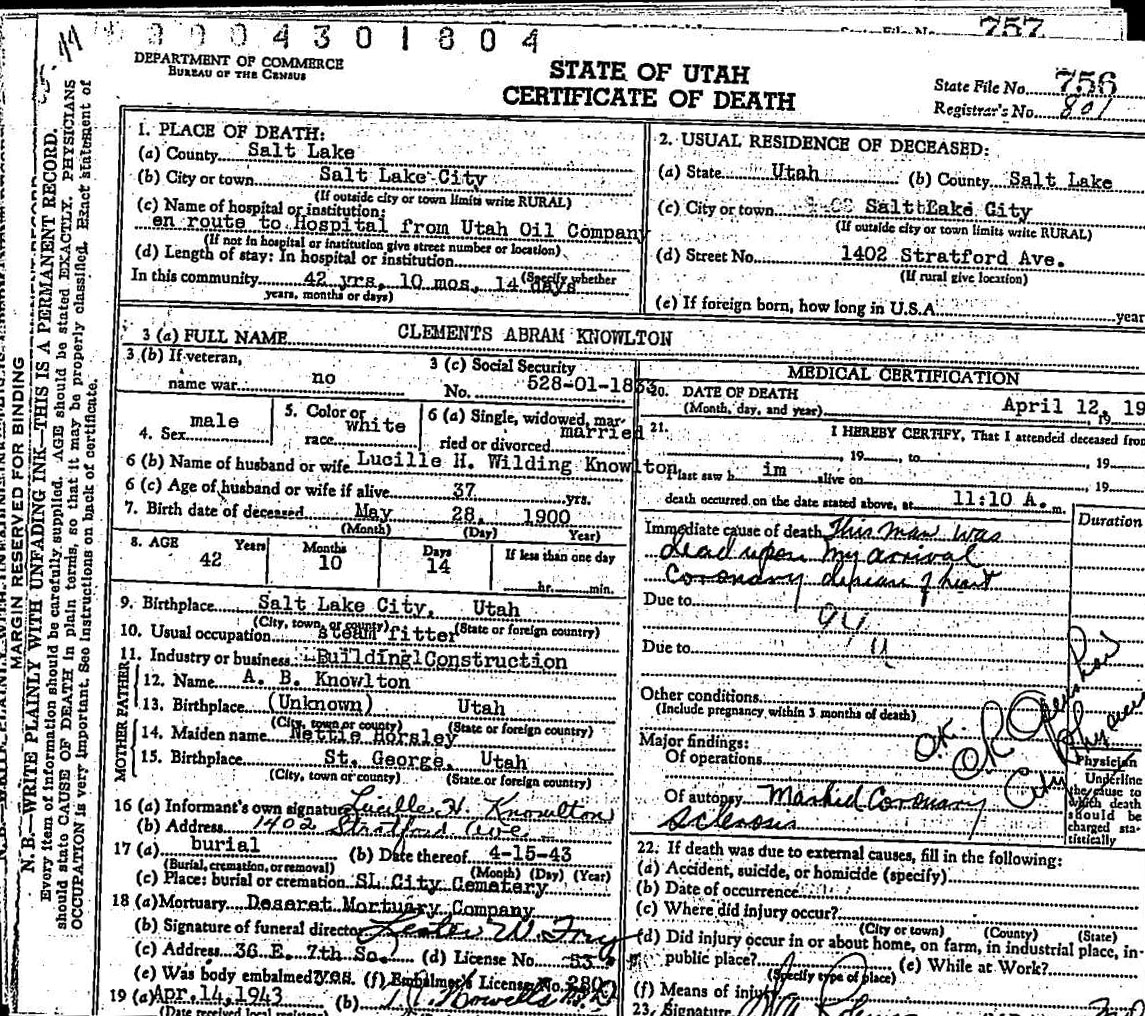 757
3004301804
DEPARTMENT OF COMMERCE
BUREAU OF THE CENSUS
STATE OF UTAH
CERTIFICATE OF DEATH
State File No. 756
Registrar's No. 801
MARGIN RESERVED FOR BINDING
N. B.—WRITE PLAINLY WITH UNFADING INK—THIS IS A PERMANENT RECORD.
Every item of information should be carefully supplied. AGE should be stated EXACTLY. PHYSICIANS
should state CAUSE OF DEATH in plain terms, so that it may be properly classified. Exact statement of
OCCUPATION is very important. See instructions on back of certificate.
1. PLACE OF DEATH:
(a) County Salt Lake
(b) City or town Salt Lake City
(If outside city or town limits write RURAL)
(c) Name of hospital or institution:
en route to Hospital from Utah Oil Company
(If not in hospital or institution give street number or location)
(d) Length of stay: In hospital or institution
(Specify whether
In this community 42 yrs. 10 mos. 14 days
years, months or days)
2. USUAL RESIDENCE OF DECEASED:
(a) State Utah (b) County Salt Lake
(c) City or town Salt Lake City
(If outside city or town limits write RURAL)
(d) Street No. 1402 Stratford Ave.
(If rural give location)
(e) If foreign born, how long in U.S.A. year
3 (a) FULL NAME CLEMENTS ABRAM KNOWLTON
3 (b) If veteran,
name war no
3 (c) Social Security
No. 528-01-1833
4. Sex male
5. Color or
race white
6 (a) Single, widowed, mar-
ried or divorced married
6 (b) Name of husband or wife Lucille H. Wilding Knowlton
6 (c) Age of husband or wife if alive 37 yrs.
7. Birth date of deceased May 28, 1900
(Month) (Day) Year)
8. AGE Years Months Days If less than one day
42 10 14 hr. min.
9. Birthplace Salt Lake City, Utah
(City, town, or county) (State or foreign country)
10. Usual occupation steam fitter
11. Industry or business Building Construction
FATHER
12. Name A. B. Knowlton
13. Birthplace (Unknown) Utah
(City, town or county) (State or foreign country)
MOTHER
14. Maiden name Nettie Horsley
15. Birthplace St. George, Utah
(City, town or county) (State or foreign country)
16 (a) Informant's own signature Lucille H. Knowlton
(b) Address 1402 Stratford Ave
17 (a) burial (b) Date thereof 4-15-43
(Burial, cremation, or removal) (Month) (Day) (Year)
(c) Place: burial or cremation SL City Cemetary
18 (a) Mortuary Deseret Mortuary Company
(b) Signature of funeral director Lester W.
(c) Address 36 E. 7th So. (d) License No. 53
(e) Was body embalmed yes. (f) Embalmer's License No.
19 (a) Apr. 14, 1943 (b)
(Date received local
MEDICAL CERTIFICATION
20. DATE OF DEATH
(Month, day, and year) April 12, 19
21. I HEREBY CERTIFY, That I attended deceased from
, 19 , to , 19
I last saw h im alive on , 19
death occurred on the date stated above, at 11:10 A. m.
Duration
Immediate cause of death This man was
dead upon my arrival
Coronary disease of heart
Due to 94
Due to
Other conditions
(Include pregnancy within 3 months of death)
Major findings:
Of operations
Of autopsy Marked Coronary
Sclerosis
O.K.
City
Physician
Underline
the cause to
which death
should be
charged sta-
tistically
22. If death was due to external causes, fill in the following:
(a) Accident, suicide, or homicide (specify)
(b) Date of occurrence
(c) Where did injury occur?
(City or town) (County) (State)
(d) Did injury occur in or about home, on farm, in industrial place, in-
public place? (e) While at Work?
(Specify type of place)
(f) Means of injury
23. Signature